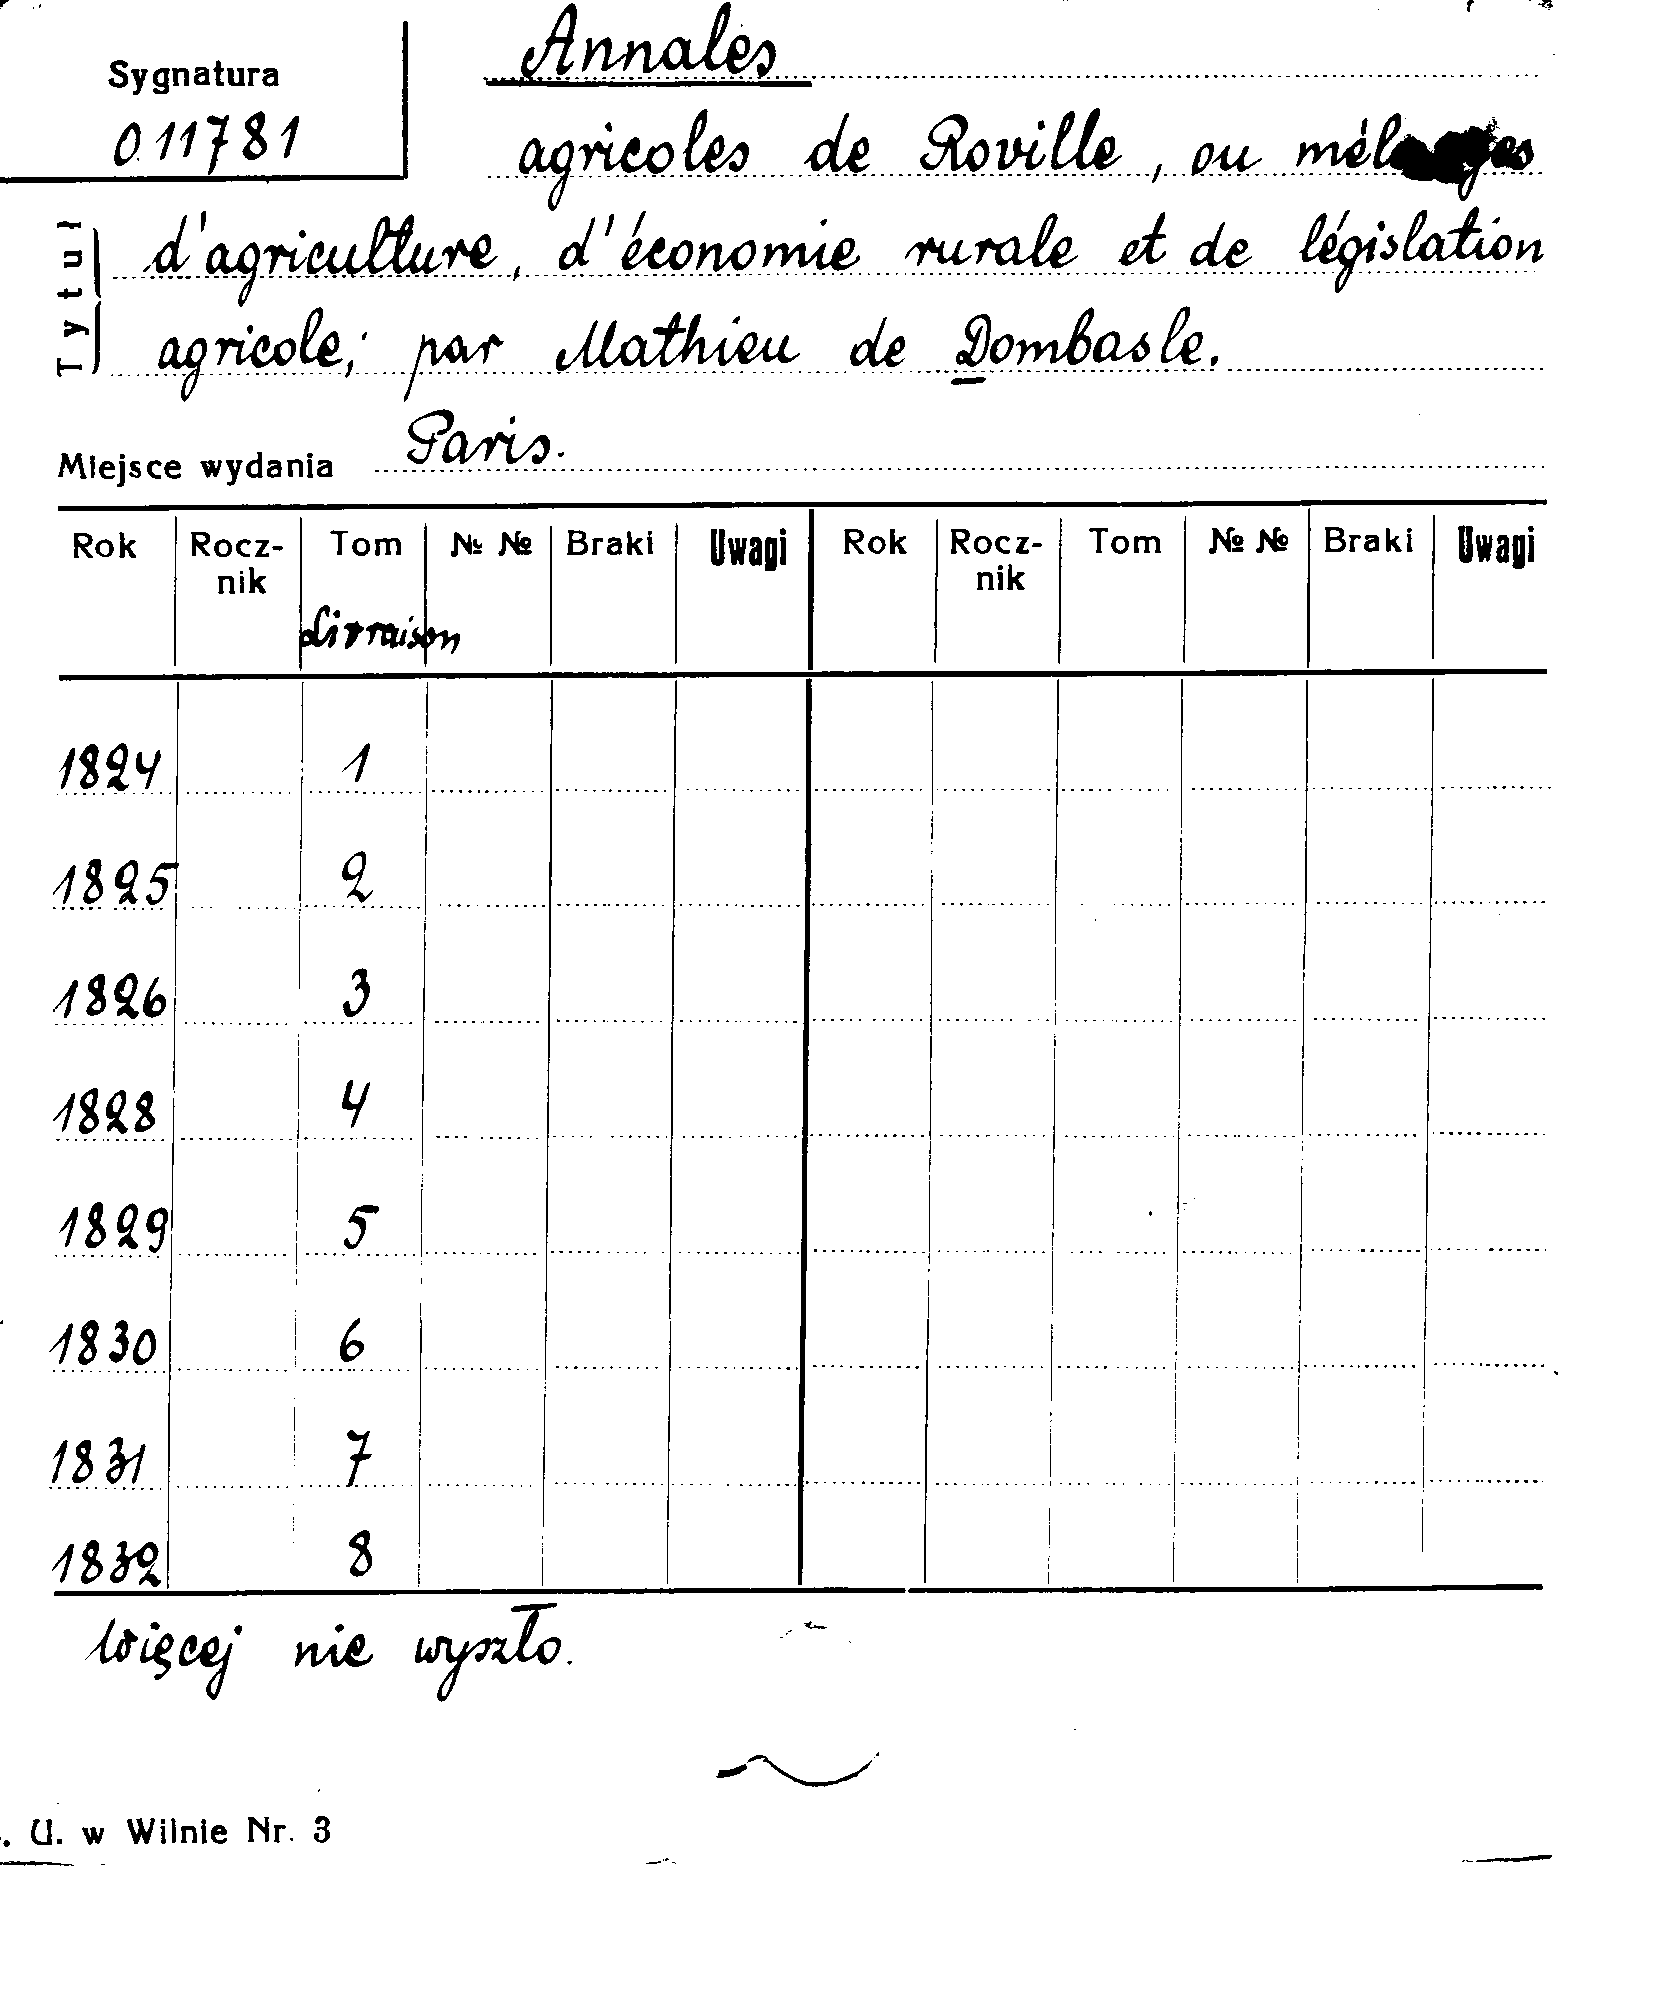 Sygnatura
011781
Annales
agricoles de Roville, ou
d'agriculture, d'économie rurale et de législation
agricole; par Mathieu de Dombasle.
Tytuł
Miejsce wydania Paris.
Rok Rocz-nik Tom № № Braki Uwagi Rok Rocz-nik Tom № № Braki Uwagi
Livraison
1824 1
1825 2
1826 3
1828 4
1829 5
1830 6
1831 7
1832 8
Więcej nie wyszło.
. U. w Wilnie Nr. 3